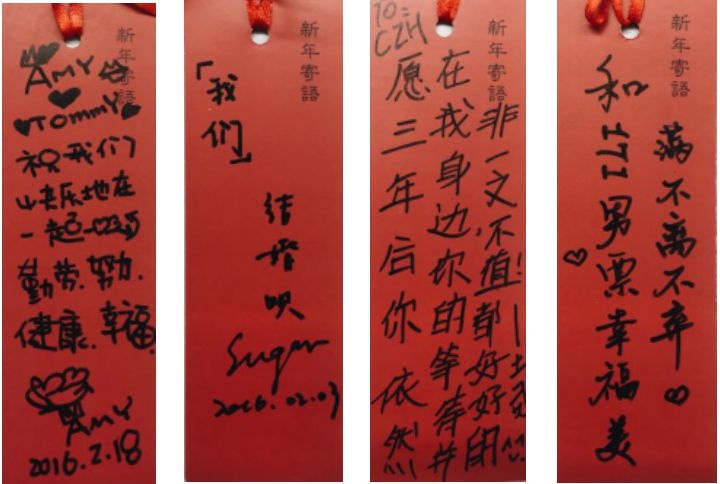 新年寄語
AMY
TOMMY
祝我们
快乐地在
一起
勤劳.努力.
健康.幸福
AMY
2016.2.18
新年寄語
「我们」
结婚呗
Sugar
2016.02.03
新年寄語
TO:
CZH
愿三年后你依然
在我身边,的等待并
非一文不值!都好好的
新年寄語
和171男票幸福美
满不离不弃